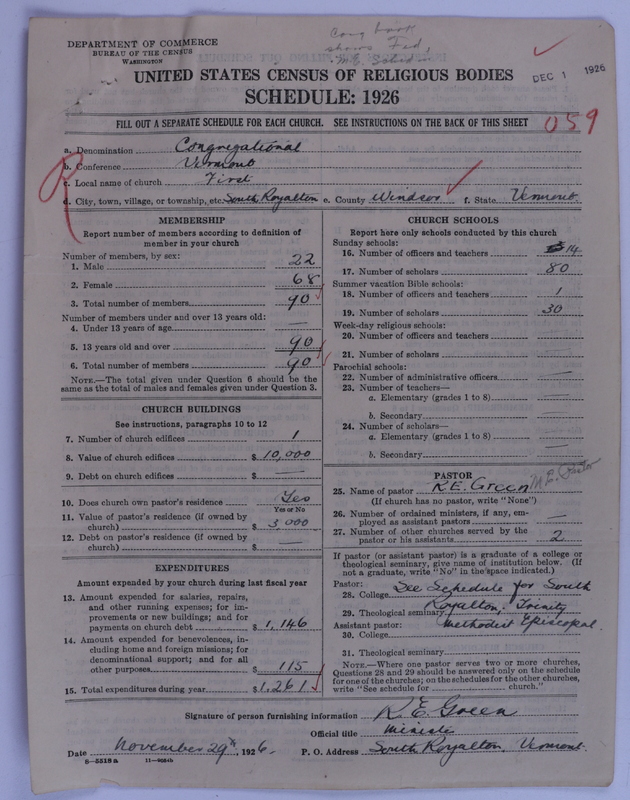 DEPARTMENT OF COMMERCE
BUREAU OF THE CENSUS
WASHINGTON
Cong
shows Fed,
M.E.
DEC 1 1926
UNITED STATES CENSUS OF RELIGIOUS BODIES
SCHEDULE: 1926
FILL OUT A SEPARATE SCHEDULE FOR EACH CHURCH. SEE INSTRUCTIONS ON THE BACK OF THIS SHEET
059
R
a. Denomination Congregational
b. Conference Vermont
c. Local name of church First
d. City, town, village, or township, etc. South Royalton e. County Windsor f. State Vermont.
MEMBERSHIP
Report number of members according to definition of
member in your church
Number of members, by sex:
1. Male 22
2. Female 68
3. Total number of members 90
Number of members under and over 13 years old:
4. Under 13 years of age —
5. 13 years old and over 90
6. Total number of members 90
NOTE.—The total given under Question 6 should be
same as the total of males and females given under Question 3.
CHURCH BUILDINGS
See instructions, paragraphs 10 to 12
7. Number of church edifices 1
8. Value of church edifices $ 10,000
9. Debt on church edifices $ —
10. Does church own pastor's residence Yes
Yes or No
11. Value of pastor's residence (if owned by
church) $ 3 000
12. Debt on pastor's residence (if owned by
church) $ —
EXPENDITURES
Amount expended by your church during last fiscal year
13. Amount expended for salaries, repairs,
and other running expenses; for im-
provements or new buildings; and for
payments on church debt $ 1,146
14. Amount expended for benevolences, in-
cluding home and foreign missions; for
denominational support; and for all
other purposes $ 115
15. Total expenditures during year $ 1,261
CHURCH SCHOOLS
Report here only schools conducted by this church
Sunday schools:
16. Number of officers and teachers 14
17. Number of scholars 80
Summer vacation Bible schools:
18. Number of officers and teachers 1
19. Number of scholars 30
Week-day religious schools:
20. Number of officers and teachers —
21. Number of scholars —
Parochial schools:
22. Number of administrative officers —
23. Number of teachers—
a. Elementary (grades 1 to 8) —
b. Secondary —
24. Number of scholars—
a. Elementary (grades 1 to 8) —
b. Secondary —
PASTOR
25. Name of pastor R.E. Green M.E. Pastor
(If church has no pastor, write "None")
26. Number of ordained ministers, if any, em-
ployed as assistant pastors —
27. Number of other churches served by the
pastor or his assistants 2
If pastor (or assistant pastor) is a graduate of a college or
theological seminary, give name of institution below. (If
not a graduate, write "No" in the space indicated.)
Pastor: See Schedule for South
28. College
29. Theological seminary Royalton; Trinity
Assistant pastor: Methodist Episcopal.
30. College
31. Theological seminary
NOTE.—Where one pastor serves two or more churches,
Questions 28 and 29 should be answered only on the schedule
for one of the churches; on the schedules for the other churches,
write "See schedule for church."
Signature of person furnishing information R.E. Green
Official title Minister
Date November 29th, 1926. P. O. Address South Royalton, Vermont.
8—5518a 11—9024b